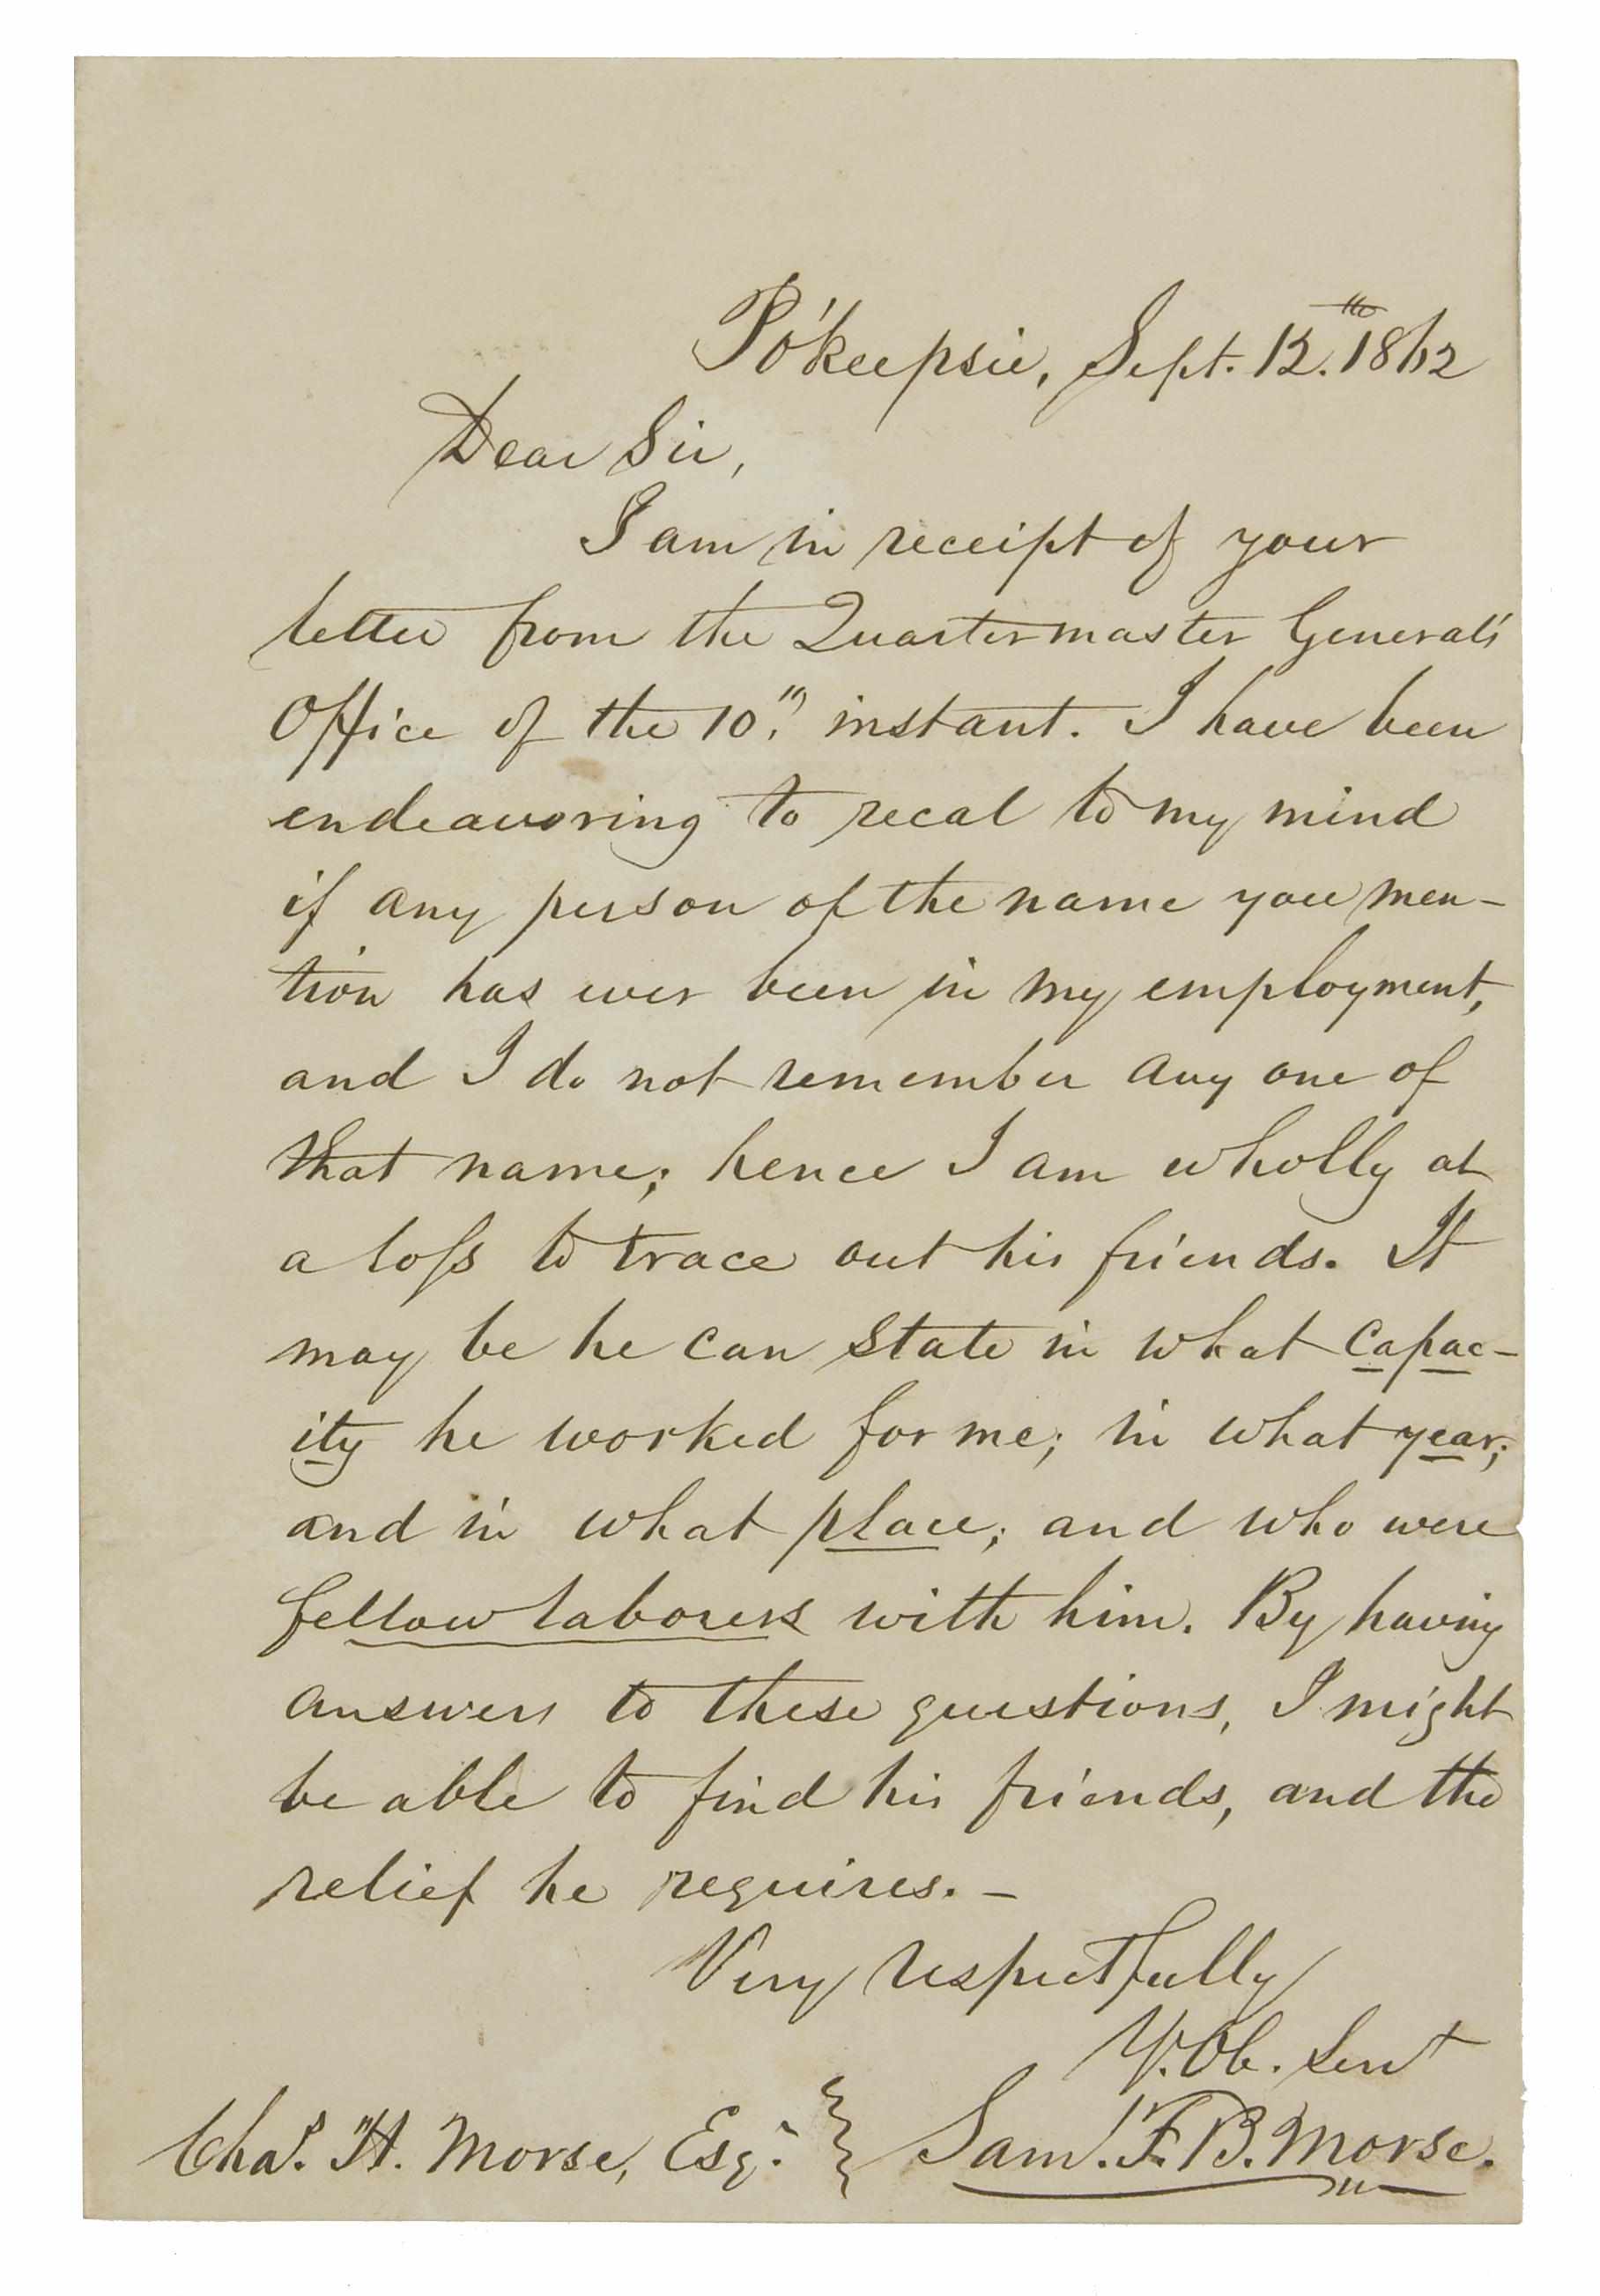 Po'keepsie, Sept. 12.th 1862
Dear Sir,
I am in receipt of your
letter from the Quartermaster General's
Office of the 10th instant. I have been
endeavoring to recal to my mind
if any person of the name you men-
tion has ever been in my employment,
and I do not remember any one of
that name; hence I am wholly at
a loss to trace out his friends. It
may be he can state in what capac-
ity he worked for me; in what year;
and in what place; and who were
fellow laborers with him. By having
answers to these questions, I might
be able to find his friends, and the
relief he requires. –
Very respectfully
Y. Ob. Servt
Chas. H. Morse, Esqr. } Saml. F. B. Morse.